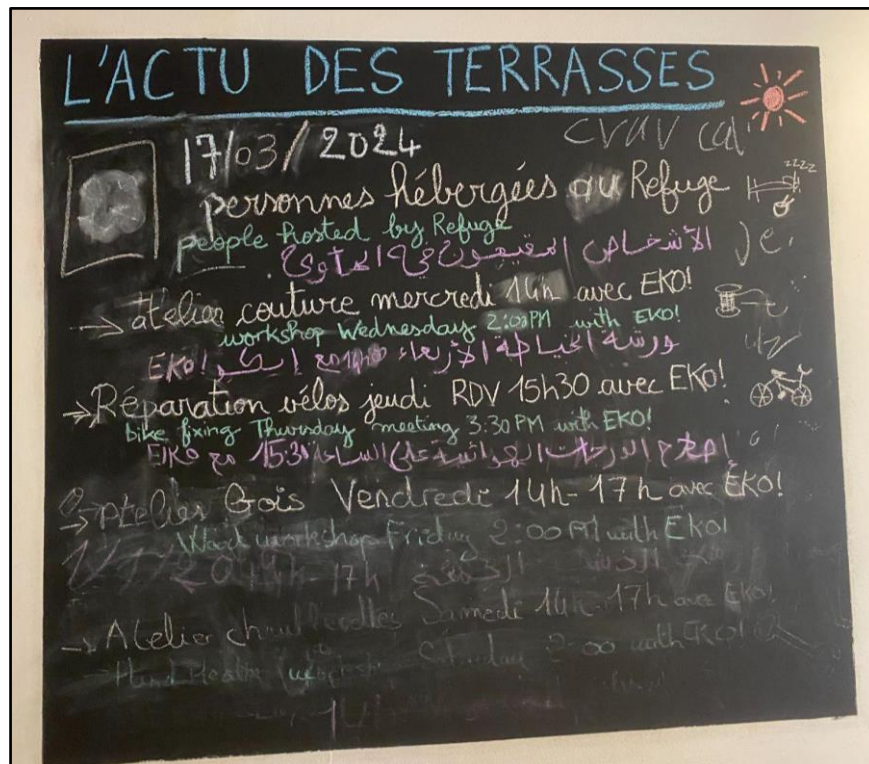 L'ACTU DES TERRASSES
17/03/2024
personnes hébergées au Refuge
zzzz
people hosted by Refuge
الأشخاص المقيمون في المأوى
→ atelier couture mercredi 14h avec EKO!
workshop Wednesday 2:00PM with EKO!
ورشة الخياطة الأربعاء 14h مع إيكو EKO!
→ Réparation vélos jeudi RDV 15h30 avec EKO!
bike fixing Thursday meeting 3:30 PM with EKO!
الهوائية على الساعة 15:30 مع EKO
→ Atelier Bois Vendredi 14h-17h avec EKO!
Wood workshop Friday 2:00 PM with EKO!
14h-17h
→ Atelier chaufferettes Samedi 14h-17h avec EKO!
Hand workshop Saturday 2:00 with EKO!